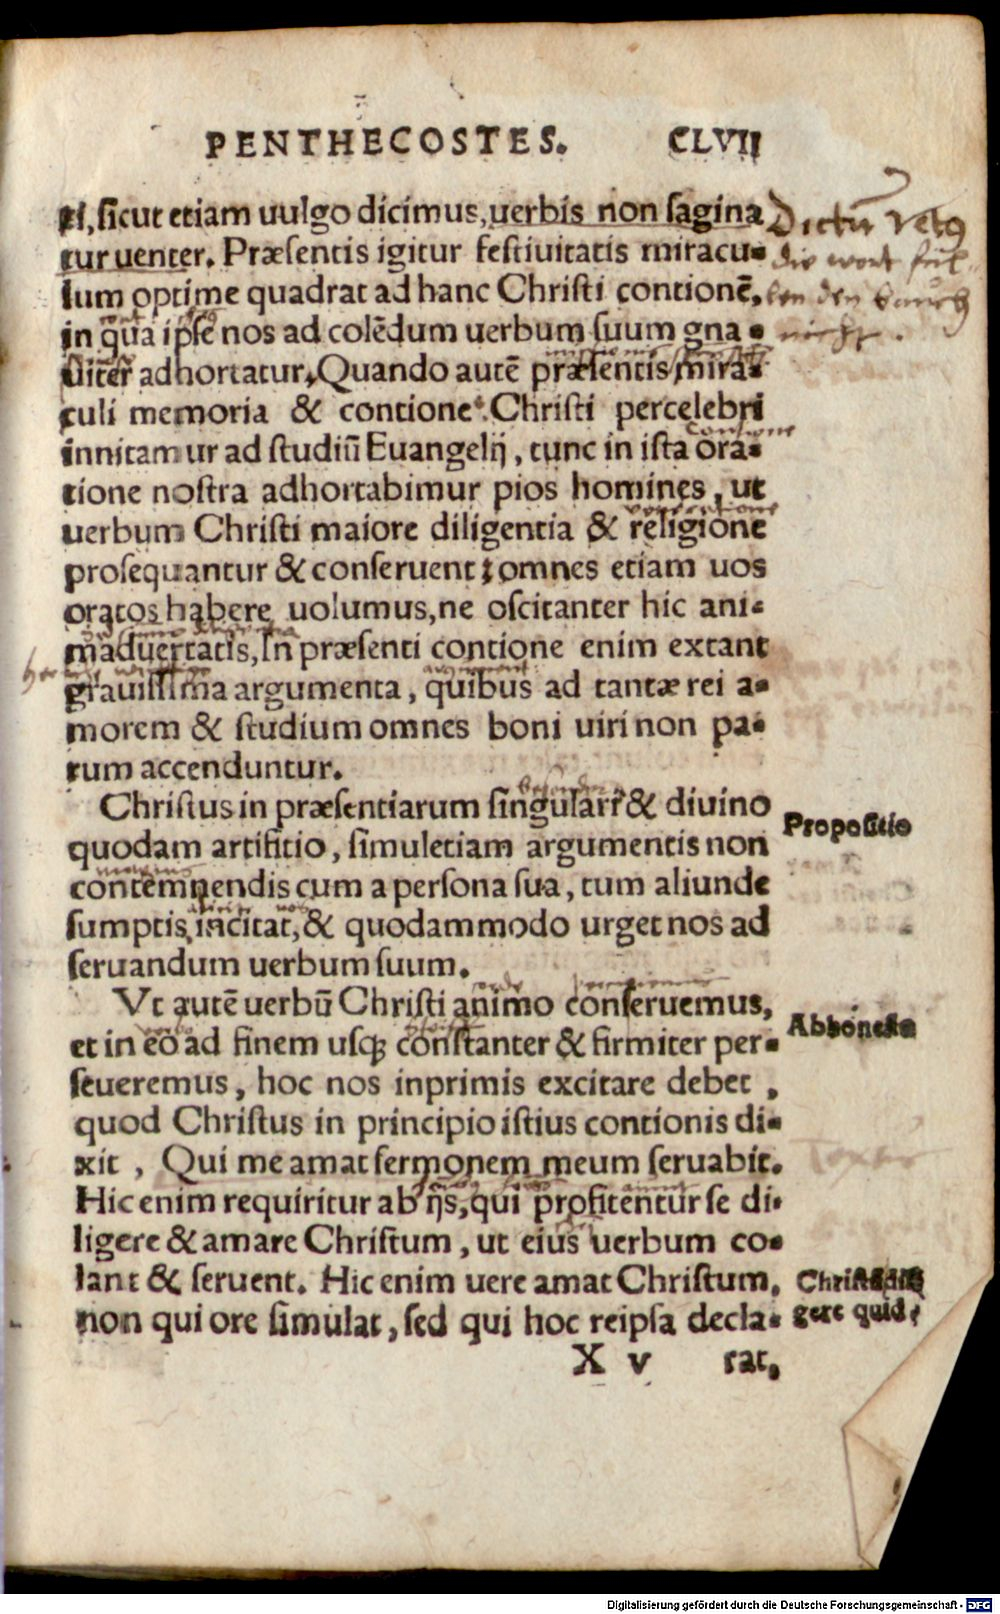 PENTHECOSTES. CLVII
ri, sicut etiam uulgo dicimus, uerbis non sagina
tur uenter. Præsentis igitur festiuitatis miracu-
lum optime quadrat ad hanc Christi contionē,
in qua ipse nos ad colēdum uerbum suum gna-
uiter adhortatur. Quando autē præsentis mira-
culi memoria & contione Christi percelebri
innitamur ad studiū Euangelij, tunc in ista ora-
tione nostra adhortabimur pios homines, ut
uerbum Christi maiore diligentia & religione
prosequantur & conseruent: omnes etiam uos
oratos habere uolumus, ne oscitanter hic ani-
maduertatis, In præsenti contione enim extant
grauissima argumenta, quibus ad tantæ rei a-
morem & studium omnes boni uiri non pa-
rum accenduntur.
Christus in præsentiarum singulari & diuino
quodam artifitio, simul etiam argumentis non
contemnendis cum a persona sua, tum aliunde
sumptis, incitat, & quodammodo urget nos ad
seruandum uerbum suum.
Vt autē uerbū Christi animo conseruemus,
et in eo ad finem usqꝫ constanter & firmiter per-
seueremus, hoc nos inprimis excitare debet,
quod Christus in principio istius contionis di-
xit, Qui me amat sermonem meum seruabit.
Hic enim requiritur ab ijs, qui profitentur se di-
ligere & amare Christum, ut eius uerbum co-
lant & seruent. Hic enim uere amat Christum,
non qui ore simulat, sed qui hoc reipsa decla-
X v rat,
Dictū vetꝰ
die wort ful-
len den bauch
nicht.
contione
veneratione
besonder
Propositio
Ab honesto
Christū dili
gere quid?
Digitalisierung gefördert durch die Deutsche Forschungsgemeinschaft - DFG